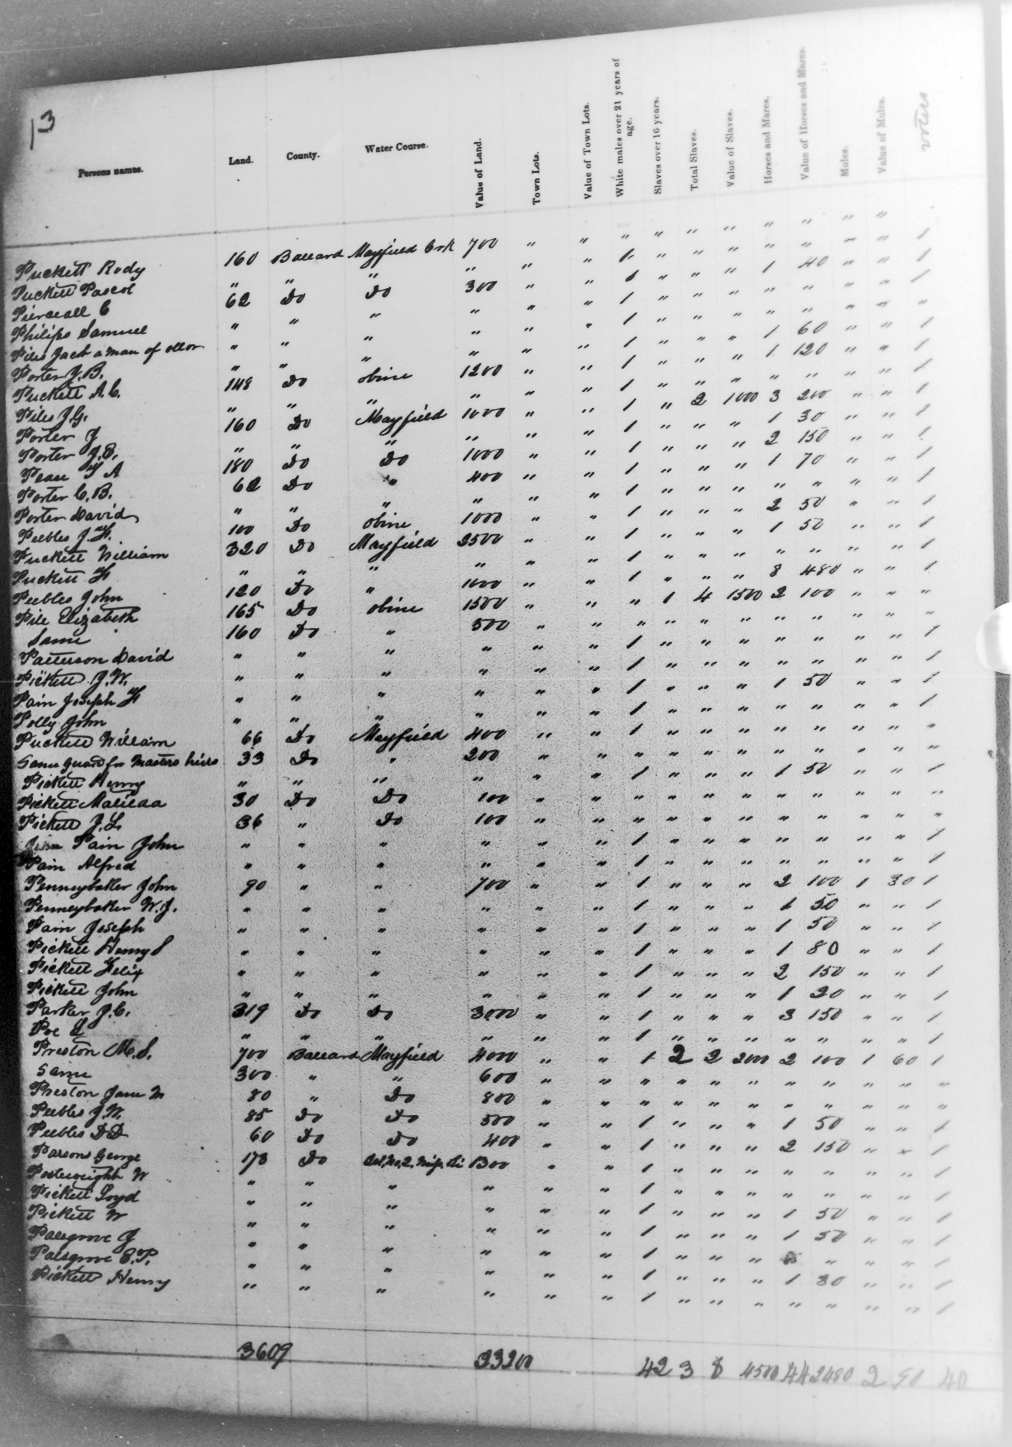 13
Persons names. Land. County. Water Course. Value of Land. Town Lots. Value of Town Lots. White males over 21 years of age. Slaves over 16 years. Total Slaves. Value of Slaves. Horses and Mares. Value of Horses and Mares. Mules. Value of Mules. voters
Puckett Rody 160 Ballard Mayfield Crk 700 " " " " " " " " " " 1
Puckett Pascol " " " " " " 1 " " " " " " " 1
Pierceall C 62 Do Do 300 " " 1 " " " 1 40 " " 1
Philips Samuel " " " " " " 1 " " " " " " " 1
Piles Jack a man of color " " " " " " 1 " " " " " " " 1
Porter J.B. " " " " " " 1 " " " 1 60 " " 1
Puckett A.C. 148 Do obine 1200 " " 1 " " " 1 120 " " 1
Piles J.G. " " " " " " 1 " " " " " " " 1
Porter J 160 Do Mayfield 1000 " " 1 " 2 1000 3 200 " " 1
Porter J.B. " " " " " " 1 " " " 1 30 " " 1
Pease T A 180 Do Do 1000 " " 1 " " " 2 150 " " 1
Porter C.B. 62 Do " 400 " " 1 " " " 1 70 " " 1
Porter David " " " " " " 1 " " " " " " " 1
Peebles J.F. 100 Do obine 1000 " " 1 " " " 2 50 " " 1
Puckett William 320 Do Mayfield 2500 " " 1 " " " 1 50 " " 1
Puckett F " " " " " " 1 " " " " " " " 1
Peebles John 120 Do " 1000 " " 1 " " " 8 480 " " 1
Pile Elizabeth 165 Do obine 1500 " " " 1 4 1500 2 100 " " "
Same 160 Do " 500 " " " " " " " " " " "
Patterson David " " " " " " 1 " " " " " " " 1
Pickett J.W. " " " " " " 1 " " " " " " " 1
Pain Joseph F " " " " " " 1 " " " 1 50 " " 1
Polly John " " " " " " 1 " " " " " " " 1
Puckett William 66 Do Mayfield 400 " " 1 " " " " " " " "
Same guard for Masters heirs 33 Do " 200 " " " " " " " " " " "
Pickett Henry " " " " " " 1 " " " 1 50 " " 1
Pickett Malinda 30 Do Do 100 " " " " " " " " " " "
Pickett J.L. 36 " Do 100 " " " " " " " " " " "
Pain John " " " " " " 1 " " " " " " " 1
Pain Alfred " " " " " " 1 " " " " " " " 1
Penneybaker John 90 " " 700 " " 1 " " " 2 100 1 30 1
Penneybaker W.J. " " " " " " 1 " " " 1 50 " " 1
Pain Joseph " " " " " " 1 " " " 1 50 " " 1
Pickett Henry S " " " " " " 1 " " " 1 80 " " 1
Pickett Felix " " " " " " 1 " " " 2 150 " " 1
Pickett John " " " " " " 1 " " " 1 30 " " 1
Parker J.C. 319 Do Do 3000 " " 1 " " " 3 150 " " 1
Poe A " " " " " " 1 " " " " " " " 1
Preston M.S. 700 Ballard Mayfield 4000 " " 1 2 2 2000 2 100 1 60 1
Same 300 " " 600 " " " " " " " " " " "
Preston Jane M 80 " Do 800 " " " " " " " " " " "
Peebles J.W. 85 Do Do 500 " " 1 " " " 1 50 " " 1
Peebles DD 60 Do Do 400 " " 1 " " " 2 150 " " 1
Parsons George 178 Do 1300 " " 1 " " " " " " " 1
Postweight W " " " " " " 1 " " " " " " " 1
Pickett Loyd " " " " " " 1 " " " 1 50 " " 1
Pickett W " " " " " " 1 " " " 1 50 " " 1
Palsgrove J " " " " " " 1 " " " " " " 1
Palsgrove E.P. " " " " " " 1 " " " 1 30 " " 1
Pickett Henry " " " " " " 1 " " " " " " " 1
3609 33200 42 3 8 4500 44 2480 2 90 40